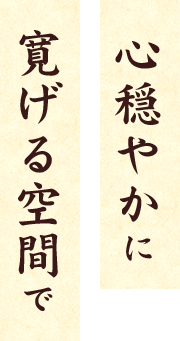 心穏やかに
寛げる空間で